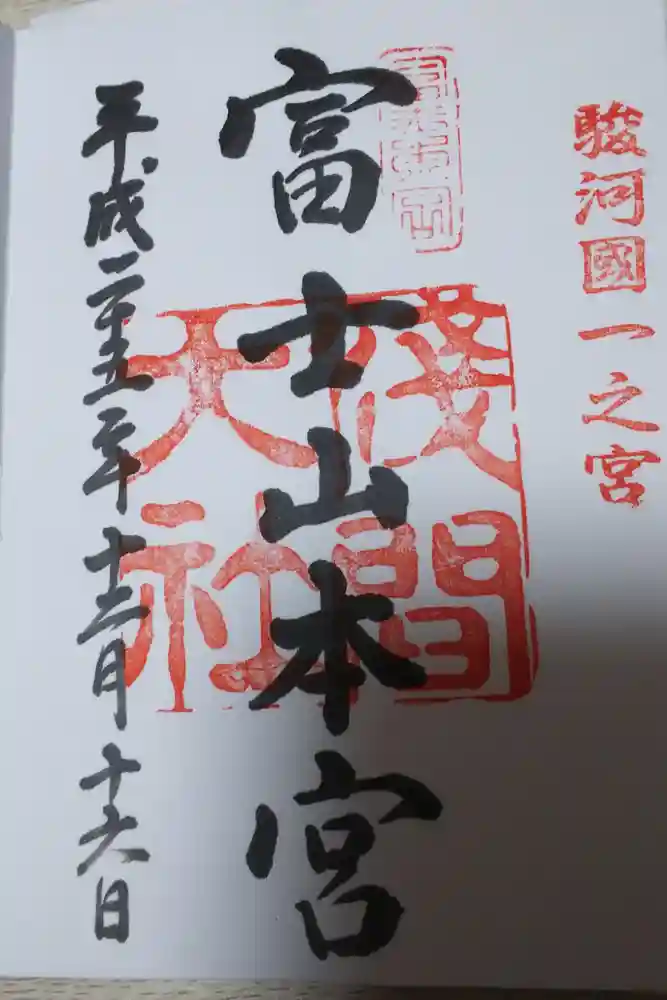 駿河國一之宮
富士山本宮
淺間
大社
平成二十五年十二月十六日